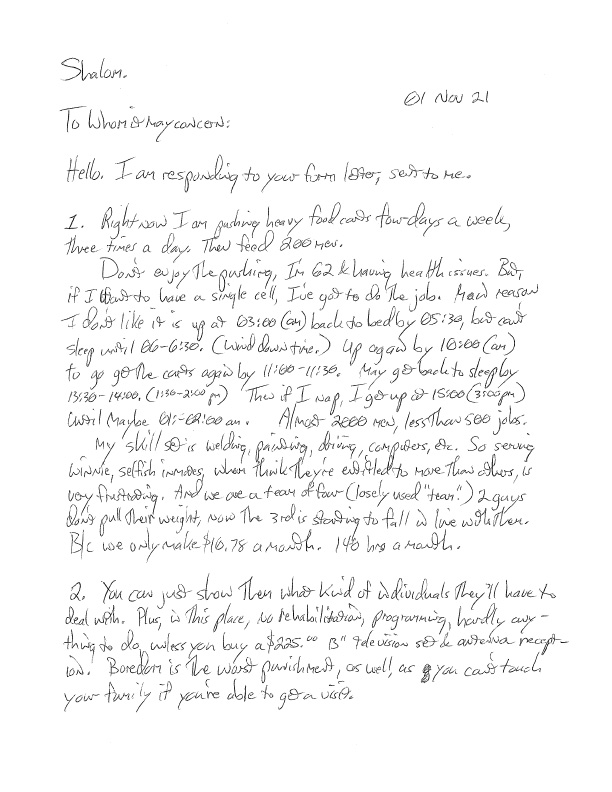 Shalom.
01 Nov 21
To Whom it may concern:
Hello. I am responding to your form letter, sent to me.
1. Right now I am pushing heavy food carts four-days a week,
three times a day. Then feed 200 men.
Don't enjoy the pushing, I'm 62 & having health issues. But,
if I want to have a single cell, I've got to do the job. Main reason
I don't like it is up at 03:00 (am) back to bed by 05:30, but can't
sleep until 06-6:30. (Wind down time.) Up again by 10:00 (am)
to go get the carts again by 11:00-11:30. May get back to sleep by
13:30-14:00, (1:30-2:00 pm) Then if I nap, I get up at 15:00 (3:00pm)
Until Maybe 01:-02:00 am. Almost 2000 men, less than 500 jobs.
My skill set is welding, painting, driving, computers, etc. So serving
winnie, selfish inmates, whom think they're entitled to more than others, is
very frustrating. And we are a team of four (losely used "team".) 2 guys
don't pull their weight, now the 3rd is starting to fall in line with them.
B/c we only make $16.78 a month. 140 hrs a month.
2. You can just show them what kind of individuals they'll have to
deal with. Plus, in this place, no rehabilitation, programming, hardly any-
thing to do, unless you buy a $225.00 13" television set & antenna recept-
ion. Boredom is the worst punishment, as well, as you can't touch
your family if you're able to get a visit.